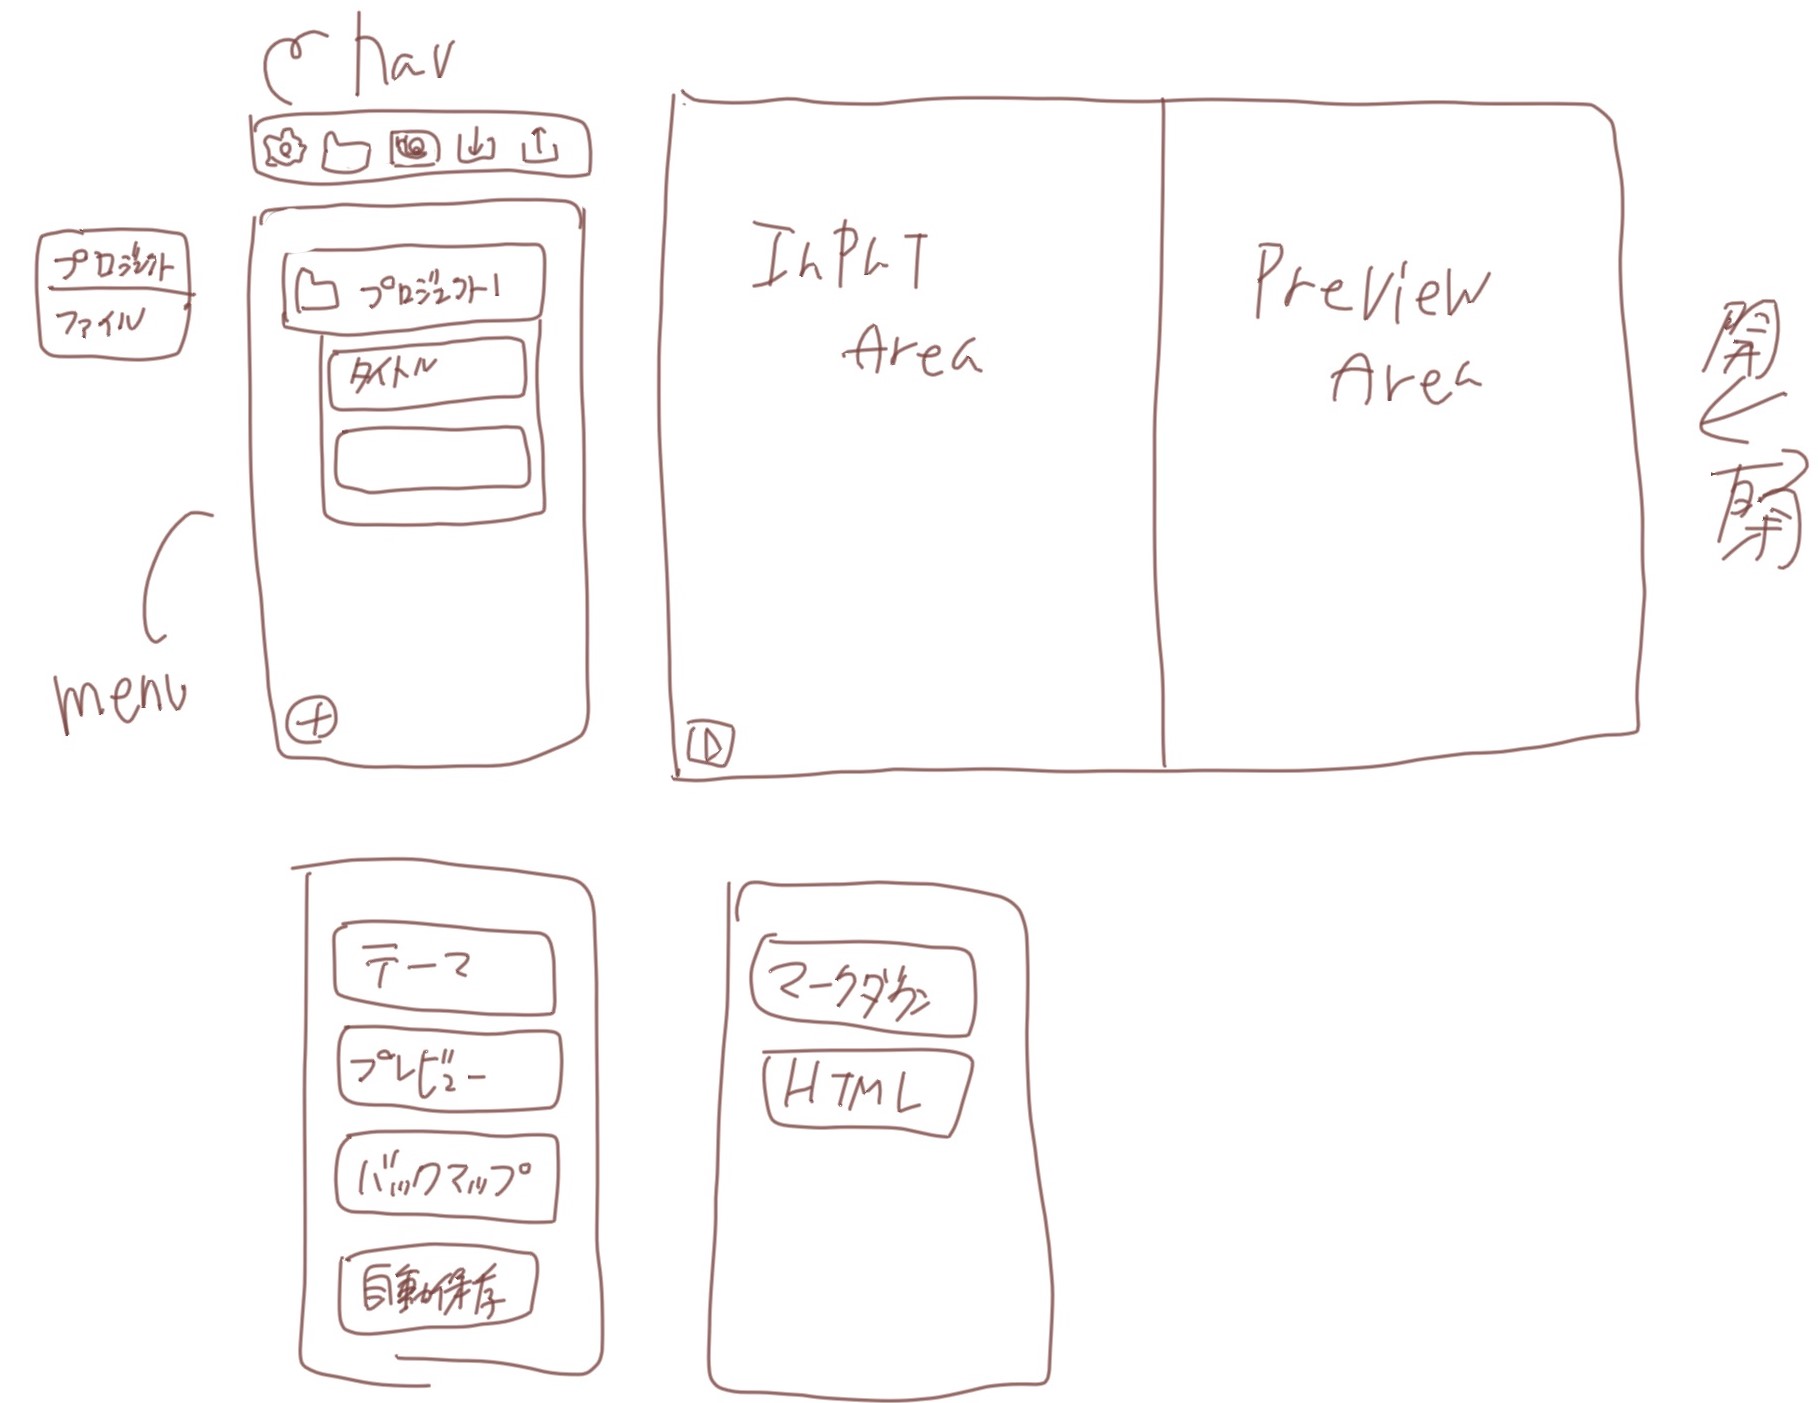 nav
プロジェクト
ファイル
プロジェクト1
タイトル
menu
InPuT
Area
Preview
Area
開
く
テーマ
プレビュー
バックマップ
自動保存
マークダウン
HTML